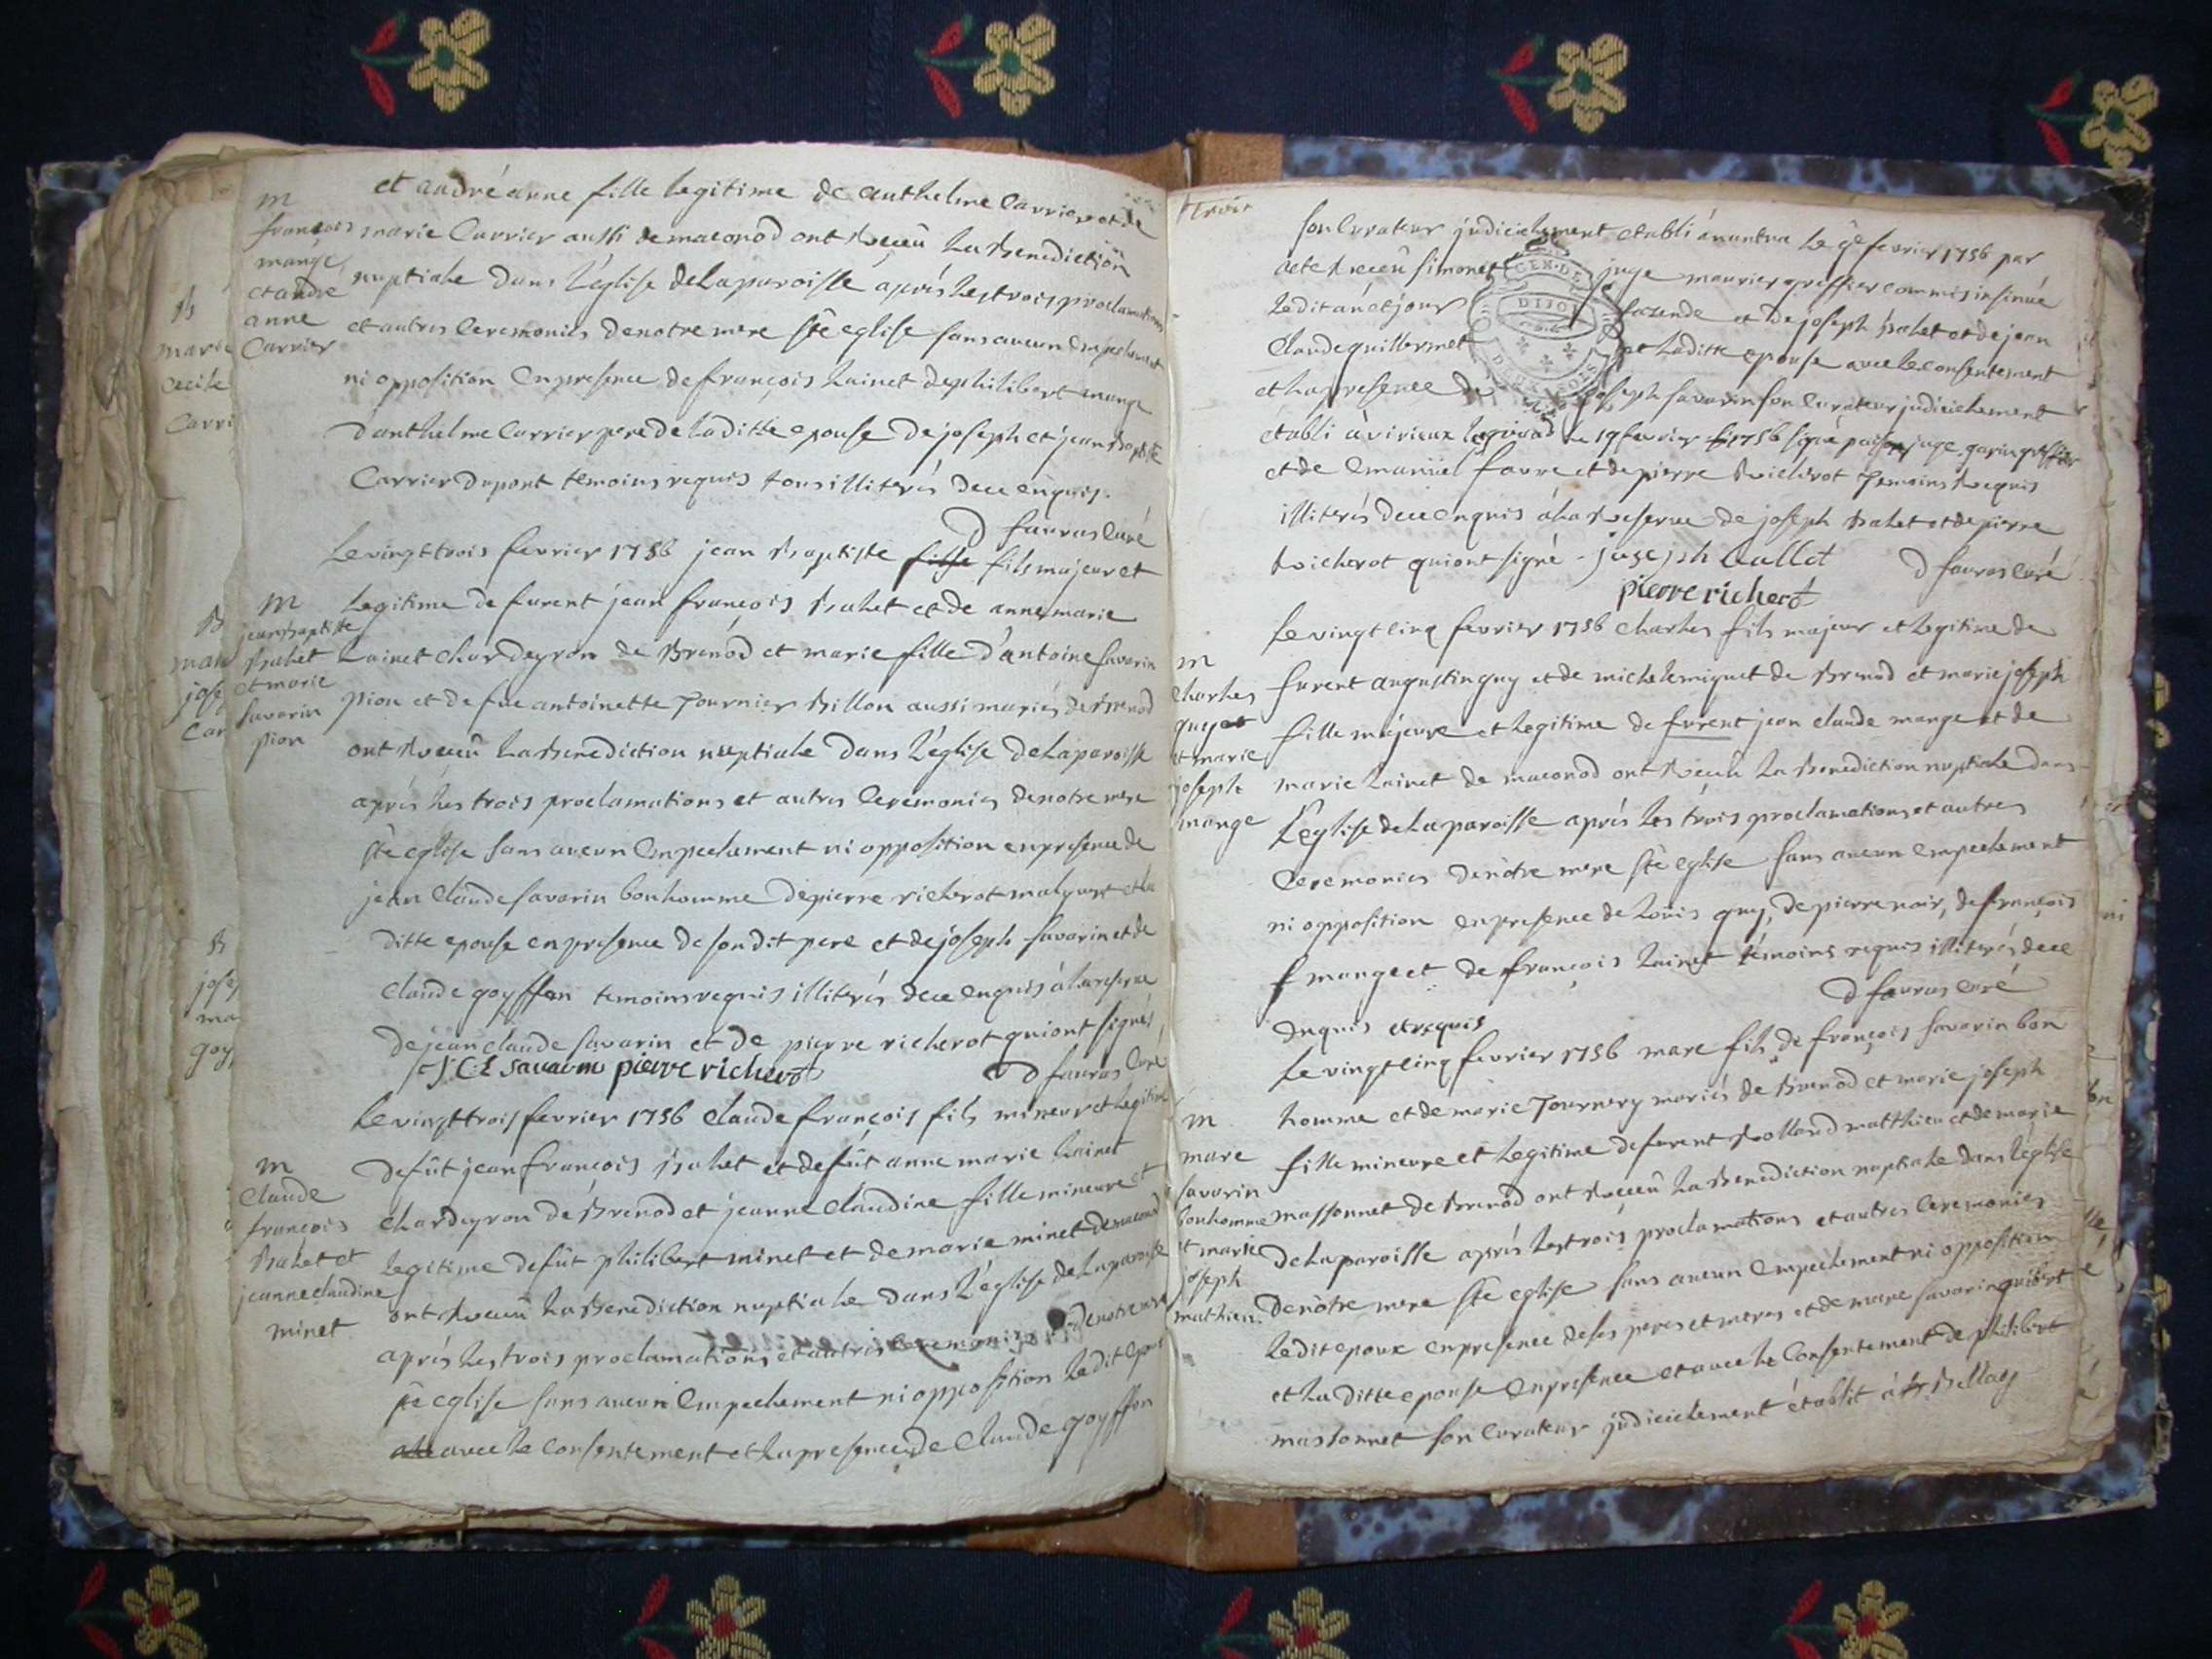 m
françois
mange
et andre
anne
Carrier
et andré anne fille legitime de anthelme Carrier et de
marie Carrier aussi de maconod ont receu la Benediction
nuptiale dans l'église de la paroisse aprés les trois proclamations
et autres Ceremonies de notre mere ste eglise sans aucun Empechement
ni opposition En presence de françois Lainet de philibert mange
d'anthelme Carrier pere de laditte epouse de joseph et jean Baptiste
Carrier Dupont temoins requis tous illiterés de ce enquis.
D favras Curé
m
jean Baptiste
Balet
et marie
savarin
pion
Le vingt trois fevrier 1756 jean Baptiste fils majeur et
legitime de furent jean françois Balet et de anne marie
Lainet Chardeyron de Brenod et marie fille d'antoine savarin
pion et de fue antoinette Tournier Billon aussi mariés de Brenod
ont receu la Benediction nuptiale dans l'église de la paroisse
aprés les trois proclamations et autres Ceremonies de notre mere
ste eglise sans aucun Empechement ni opposition en presence de
jean Claude savarin bonhomme de pierre richerot et la
ditte epouse en presence de son dit pere et de joseph savarin et de
Claude goyffon temoins requis illiterés de ce enquis à la reserve
de jean claude savarin et de pierre richerot qui ont signés
J Cl savarin pierre richerot D favras Curé
m
Claude
françois
Balet et
jeanne claudine
minet
Le vingt trois fevrier 1756 Claude françois fils mineur et legitime
de fût jean françois Balet et de fût anne marie Lainet
Chardeyron de Brenod et jeanne Claudine fille mineure et
legitime de fût philibert minet et de marie minet de maconod
ont receu la Benediction nuptiale dans l'église de la paroisse
aprés les trois proclamations et autres Ceremonies de notre mere
ste eglise sans aucun Empechement ni opposition ledit epoux
avec le consentement et la presence de Claude goyffon
trois
son Curateur judicielement etabli á nantua le 9e fevrier 1756 par
acte receu simonet juge maurier greffier commis insinué
ledit an et jour et de joseph Balet et de jean
Claude guillermet et laditte epouse avec le consentement
et la presence de joseph savarin son Curateur judicielement
établi à virieux le 19 fevrier 1756 signé juge garin greffier
et de Emanüel favre et de pierre Richerot Temoins Requis
illiterés de ce enquis á la Reserve de joseph Balet et de pierre
Richerot qui ont signé. josejph ballet D favras Curé
pierre richerot
m
Charles
guy et
et marie
joseph
mange
Le vingt Cinq fevrier 1756 Charles fils majeur et legitime de
furent augustin guy et de michele miguet de Brenod et marie joseph
fille majeure et legitime de furent jean claude mange et de
marie Lainet de maconod ont Receu la Benediction nuptiale dans
L'église de la paroisse aprés les trois proclamations et autres
Ceremonies de nôtre mere ste eglise sans aucun Empechement
ni opposition en presence de Loüis guy, de pierre noir, de françois
mange et de françois Lainet témoins requis illiterés de ce
Enquis et requis D favras Curé
m
marc
savarin
bonhomme
et marie
joseph
mathieu.
Le vingt Cinq fevrier 1756 marc fils de françois savarin bon
homme et de marie Tournery mariés de Brenod et marie joseph
fille mineure et legitime de furent Rolland matthieu et de marie
massonnet de Brenod ont Receu la Benediction nuptiale dans l'église
de la paroisse aprés les trois proclamations et autres Ceremonies
de nôtre mere ste eglise sans aucun Empechement ni opposition
ledit epoux en presence de ses peres et meres et de marc savarin guibert
et la ditte epouse En presence et avec le Consentement de philibert
massonnet son Curateur judicielement établit á Bellay